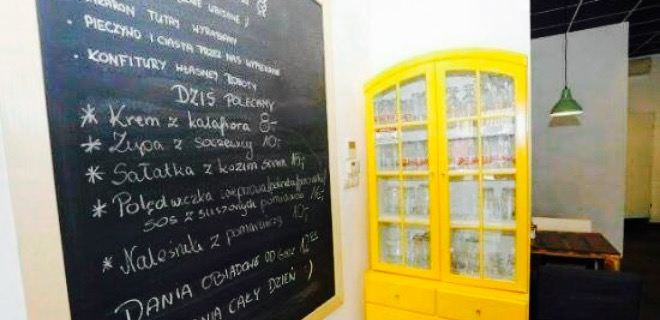 UBRANE ;)
MAKARON TUTAJ WYRABIANY
• PIECZYWO I CIASTA PRZEZ NAS WYPIEKANE
• KONFITURY WŁASNEJ ROBOTY
DZIŚ POLECAMY
* Krem z kalafiora 8,-
* Zupa z soczewicy 10,-
* Sałatka z kozim serem 15,-
* Polędwiczka wieprzowa
sos z suszonych pomidorów 16,-
* Naleśniki z pomarańczy 10,-
DANIA OBIADOWE OD GODZ. 12
CAŁY DZIEŃ :)